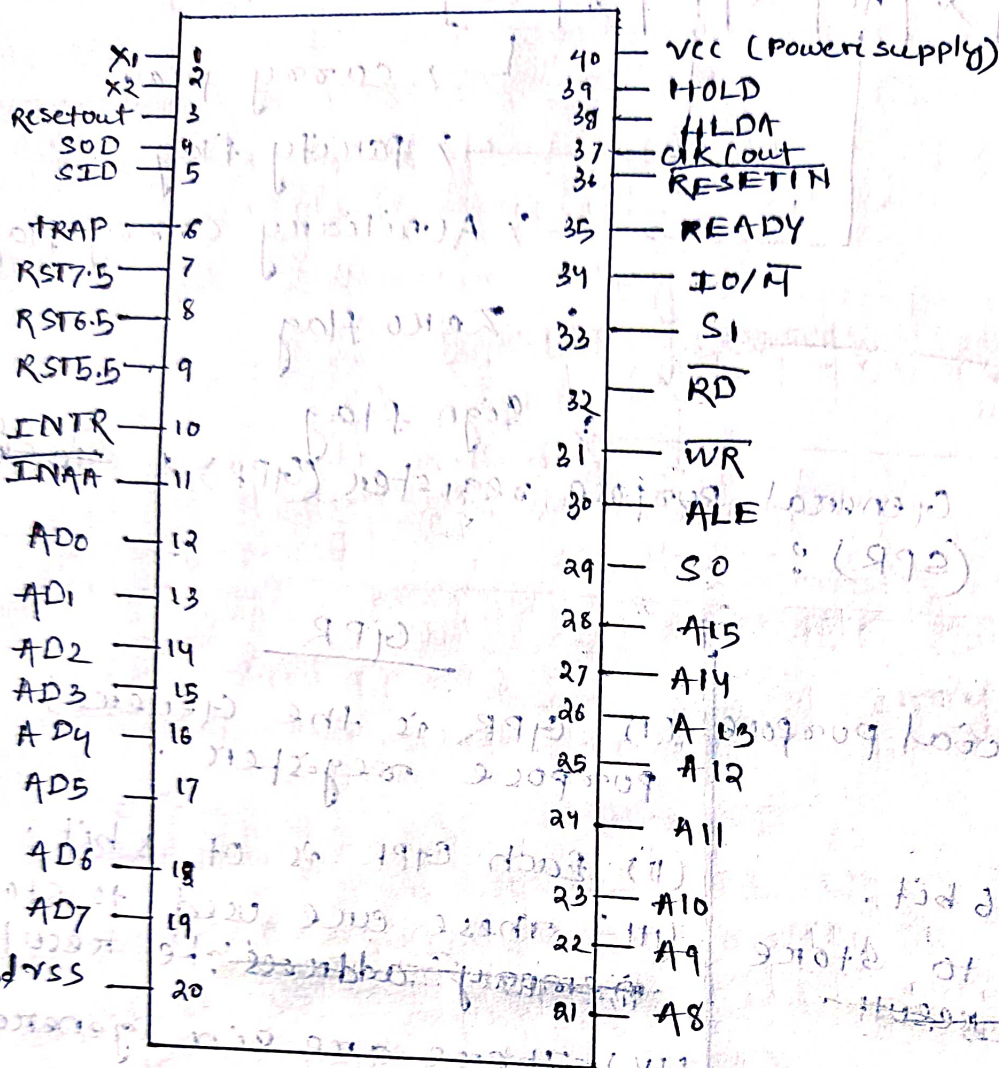 X1 1
X2 2
Resetout 3
SOD 4
SID 5
TRAP 6
RST7.5 7
RST6.5 8
RST5.5 9
INTR 10
I̅N̅A̅A̅ 11
AD0 12
AD1 13
AD2 14
AD3 15
AD4 16
AD5 17
AD6 18
AD7 19
VSS 20
40 VCC (Power supply)
39 HOLD
38 HLDA
37 CLK (out
36 R̅E̅S̅E̅T̅I̅N̅
35 READY
34 IO/M̅
33 S1
32 R̅D̅
31 W̅R̅
30 ALE
29 SO
28 A15
27 A14
26 A13
25 A12
24 A11
23 A10
22 A9
21 A8